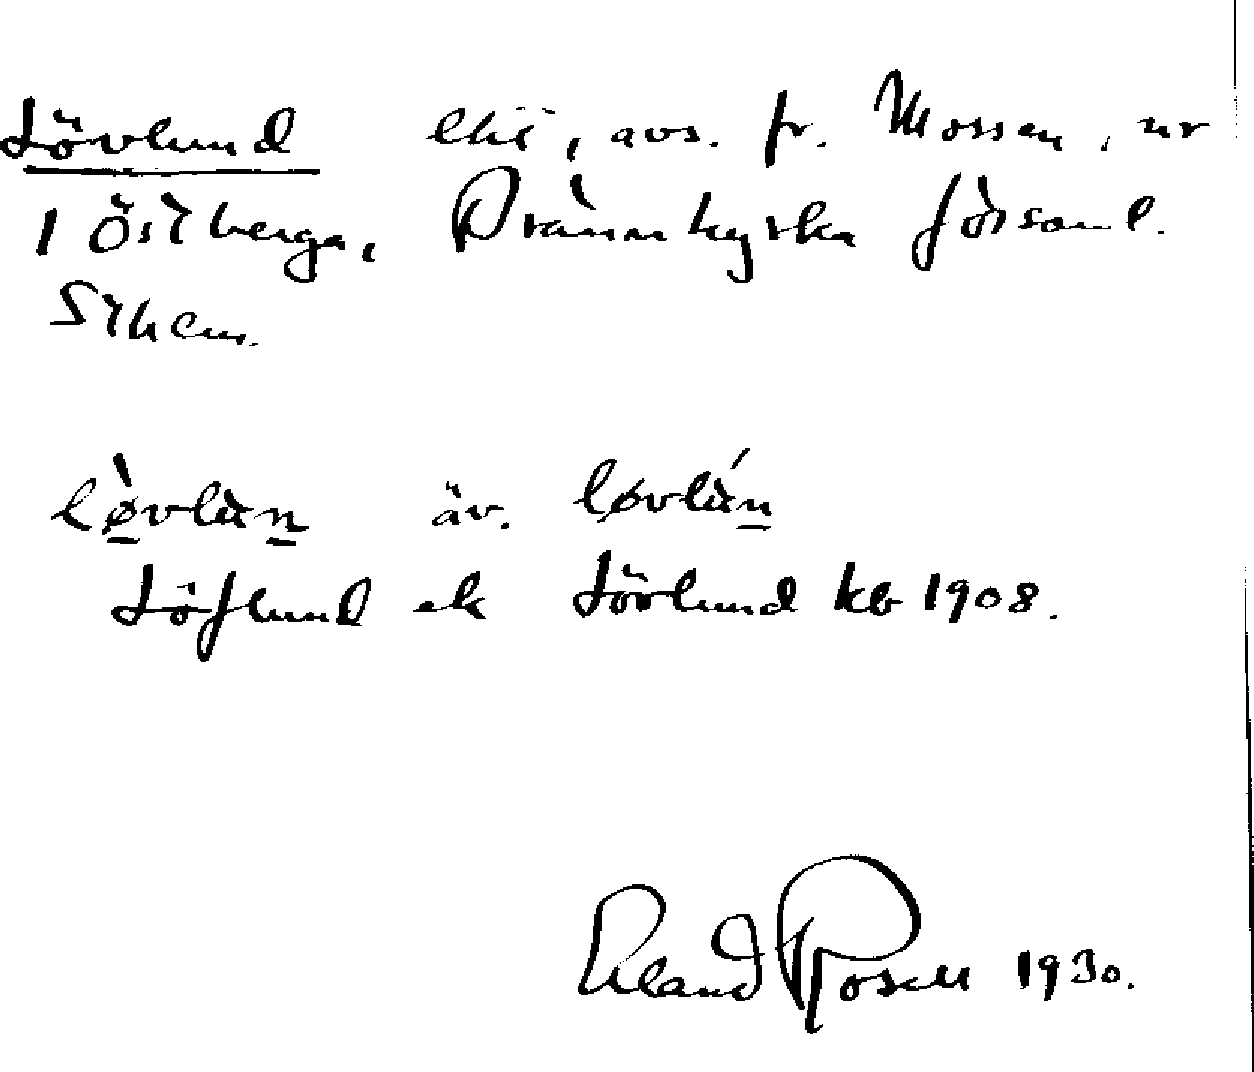 Lövlund lht, avs. fr. Mossen, nr
1 Östberga, Brännkyrka församl.
Sthm.
lø̀vlùn äv. løvlún
Löflund ek Lövlund kb 1908.
Erland Rosell 1930.